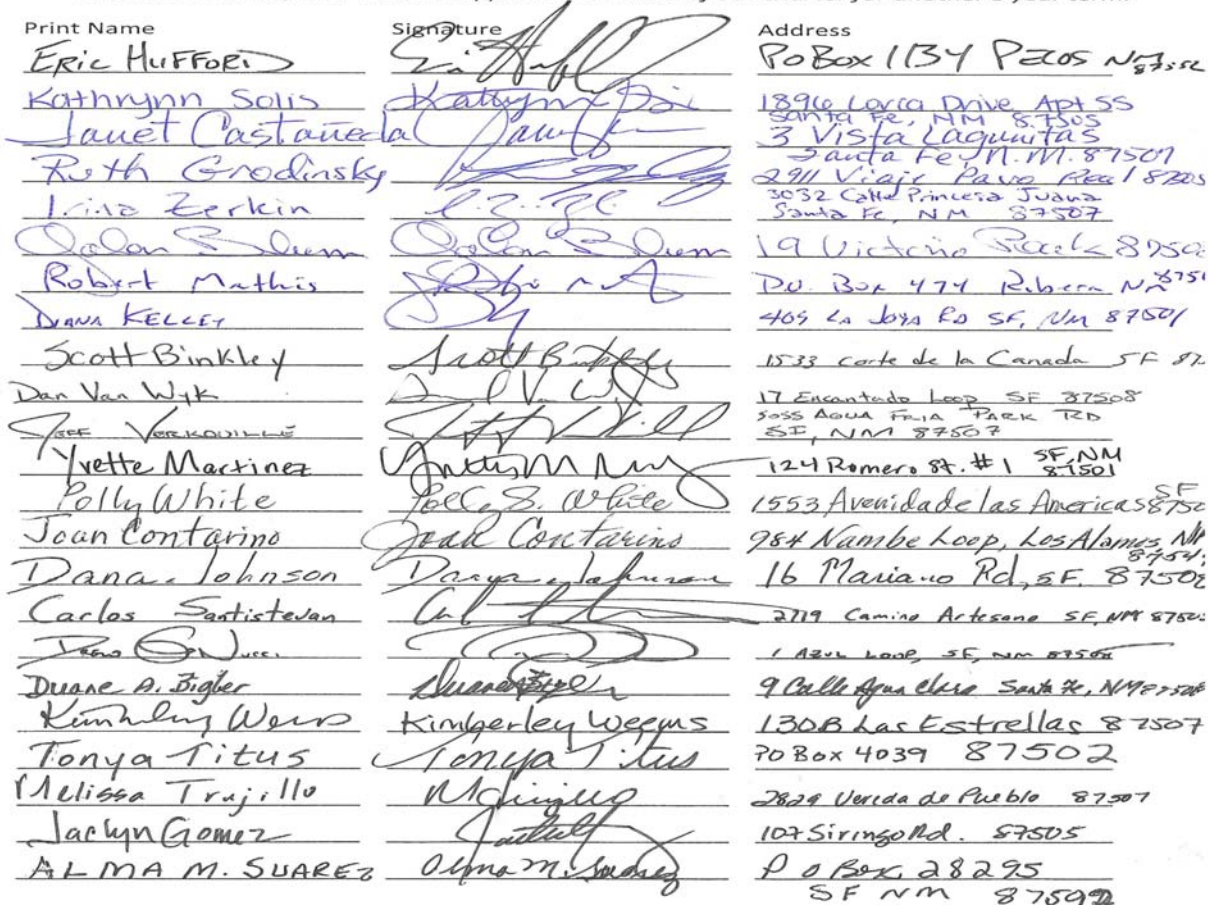 another
year term.
Print Name Signature Address
ERIC HUFFORD PO Box 1134 PECOS NM 87552
Kathrynn Solis Kathrynn Solis 1896 Lorca Drive Apt 55
Santa Fe, NM 87505
Janet Castañeda 3 Vista Lagunitas
Santa Fe, N.M. 87507
Ruth Grodinsky 2911 Viaje Pavo Real 87505
Irina Zerkin 3032 Calle Princesa Juana
Santa Fe, NM 87507
Blum Blum 19 8750
Robert Mathis P.O. Box 474 Ribera NM 8751
DIANA KELLEY 409 LA JOYA RD SF, NM 87501
Scott Binkley Scott Binkley 1533 Corte de la Canada SF 87
Dan Van Wyk 17 Encantado Loop SF 87508
JEFF AGUA FRIA PARK RD
SF, NM 87507
Yvette Martinez 124 Romero St. #1 SF, NM
87501
Polly White Polly S. White 1553 Avenida de las Americas SF
8750
Joan Contarino Joan Contarino 984 Nambe Loop, Los Alamos NM
8754
Dana Johnson Dana Johnson 16 Mariano Rd, SF. 8750
Carlos Santistevan 2719 Camino Artesano SF, NM 8750
1 AZUL LOOP, SF, NM 87508
Duane A. Bigler Duane Bigler 9 Calle Agua Clara Santa Fe, NM 87508
Kimberley Weems Kimberley Weems 130B Las Estrellas 87507
Tonya Titus Tonya Titus PO Box 4039 87502
Melissa Trujillo 2829 Vereda de Pueblo 87507
Jaclyn Gomez 107 Siringo Rd. 87505
ALMA M. SUAREZ Alma M. Suarez P O Box 28295
SF NM 87592